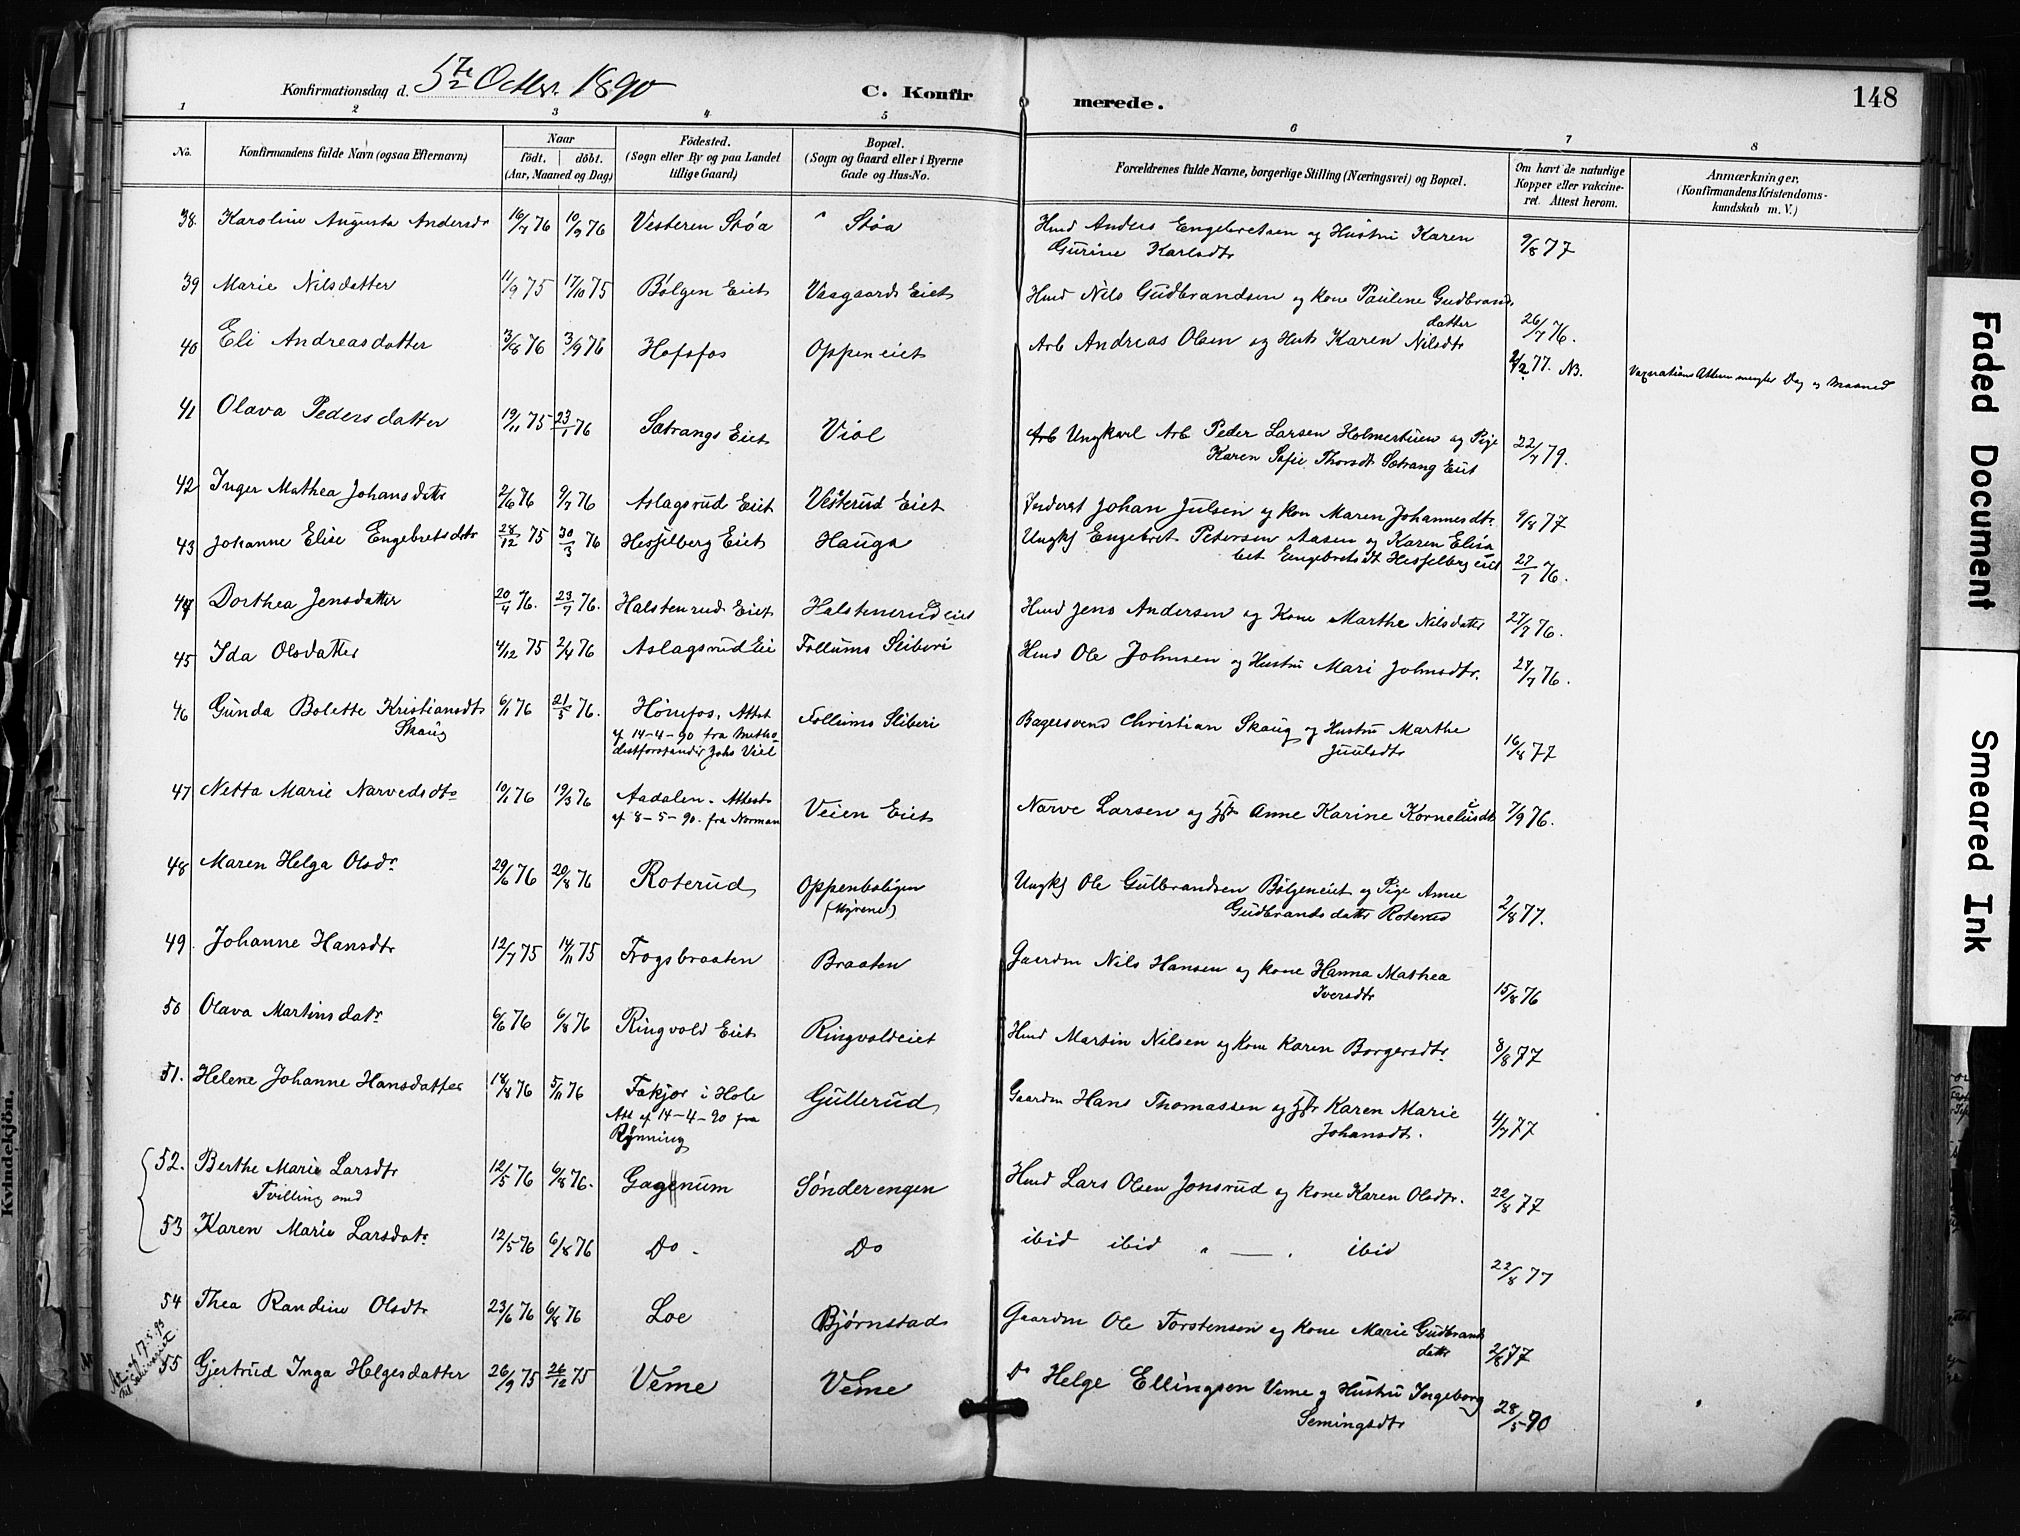 Konfirmationsdag d. 5te Octbr. 1890 C. Konfirmerede. 148
1 2 3 4 5 6 7 8
No. Konfirmandens fulde Navn (ogsaa Efternavn) Naar født. døbt. (Aar, Maaned og Dag) Fødested. (Sogn eller By og paa Landet tillige Gaard) Bopæl. (Sogn og Gaard eller i Byerne Gade og Hus-No. Forældrenes fulde Navne, borgerlige Stilling (Næringsvei) og Bopæl. Om havt de naturlige Kopper eller vakcineret. Attest herom. Anmærkninger, (Konfirmandens Kristendomskundskab m. V.)
38. Karoline Augusta Andersdr 16/7 76 10/9 76 Vesteren Støa " Støa Husmd Anders Engebretsen og Hustru Karen
Gurine Karlsdtr 9/8 77
39 Marie Nilsdatter 11/9 75 17/10 75 Bølgen Eiet Vaagaards Eiet Husmd Nils Gudbrandsen og Kone Paulene Gudbrands
datter 26/7 76.
40 Eli Andreasdatter 3/8 76 3/9 76 Hofsfos Oppeneiet Arb Andreas Olsen og Hust Karen Nilsdtr
2/2 77. NB. Vaxnations Attem mangler Dag og Maaned
41 Olava Pedersdatter 19/11 75 23/1 76 Sætrangs Eiet Viol Arb Ungkarl Arb Peder Larsen Holmestuen og Pige
Karen Sofie Thorsdt Sætrang Eiet 22/7 79.
42 Inger Mathea Johansdatr 2/6 76 9/7 76 Aslagsrud Eiet Vesterud Eiet Inderst Johan Julsen og Kon Maren Johannesdtr 9/8 77
43 Johanne Elise Engebretsdtr 28/12 75 30/3 76 Hesselberg Eiet Hauga Ungkf Engebret Petersen Aasen og Karen Elisa
bet Engebretsdt Hesselberg eiet 27/7 76.
44 Dorthea Jensdatter 20/4 76. 23/7 76. Halstenrud Eiet Halstenrud eiet Husmd Jens Andersen og Kone Marthe Nilsdatter 27/7 76.
45 Ida Olsdatter 4/12 75 2/4 76 Aslagsrud Ei Follums Sliberi Husmd Ole Johnsen og Hustru Mari Johnsdtr. 27/7 76.
46 Gunda Bolette Kristiansdtr 6/1 76 21/5 76. Hønefos. Attest Follums Sliberi Bagersvend Christian Skaug og Hustru Marthe
Skaug af 14-4-90 fra Metho- Juulsdtr 16/8 77
destforstander Johs Viel
47 Netta Marie Narvedsdtr 10/1 76 19/3 76 Aadalen. Attest Veien Eiet Narve Larsen og Hst Anne Karine Korneliusdt 7/9 76.
af 8-5-90. fra Norman
48 Maren Helga Olsdr 29/6 76 20/8 76 Roterud Oppenboligen Ungkf Ole Gulbrandsen Bølgeneiet og Pige Anne
(Myrene) Gudbrandsdatter Roterud 2/8 77.
49. Johanne Hansdtr 12/7 75 14/11 75 Frogsbraaten Braaten Gaardm Nils Hansen og Kone Hanna Mathea
Iversdtr 15/8 76
50 Olava Martinsdatr 6/6 76 6/8 76 Ringvold Eiet Ringvoldeiet Husmd Martin Nilsen og Kone Karen Borgersdtr. 8/8 77
51. Helene Johanne Hansdatter 18/8 76 5/11 76 Fakjør i Hole Gullerud Gaardm Hans Thomassen og Hstr Karen Marie
Att af 14-4-90 fra Johansdt. 4/7 77
Rynning
52. Berthe Marie Larsdtr 12/5 76 6/8 76. Gagnum Sønderengen Husmd Lars Olsen Jonsrud og Kone Karen Olsdtr. 22/8 77
Tvilling med
53 Karen Marie Larsdatr 12/5 76 6/8 76 Do - Do ibid ibid " — " ibid
22/8 77
54 Thea Randine Olsdtr 23/6 76 6/8 76 Loe Bjørnstad Gaardm Ole Torstensen og Kone Marie Gudbrands
datter 2/8 77
Att af 17.5.93
55 Gjertrud Inga Helgesdatter 26/9 75 26/12 75 Veme Veme Do Helge Ellingsen Veme og Hustru Ingeborg
Semingsdtr 28/5 90
Kvindekjön.
Faded Document
Smeared Ink